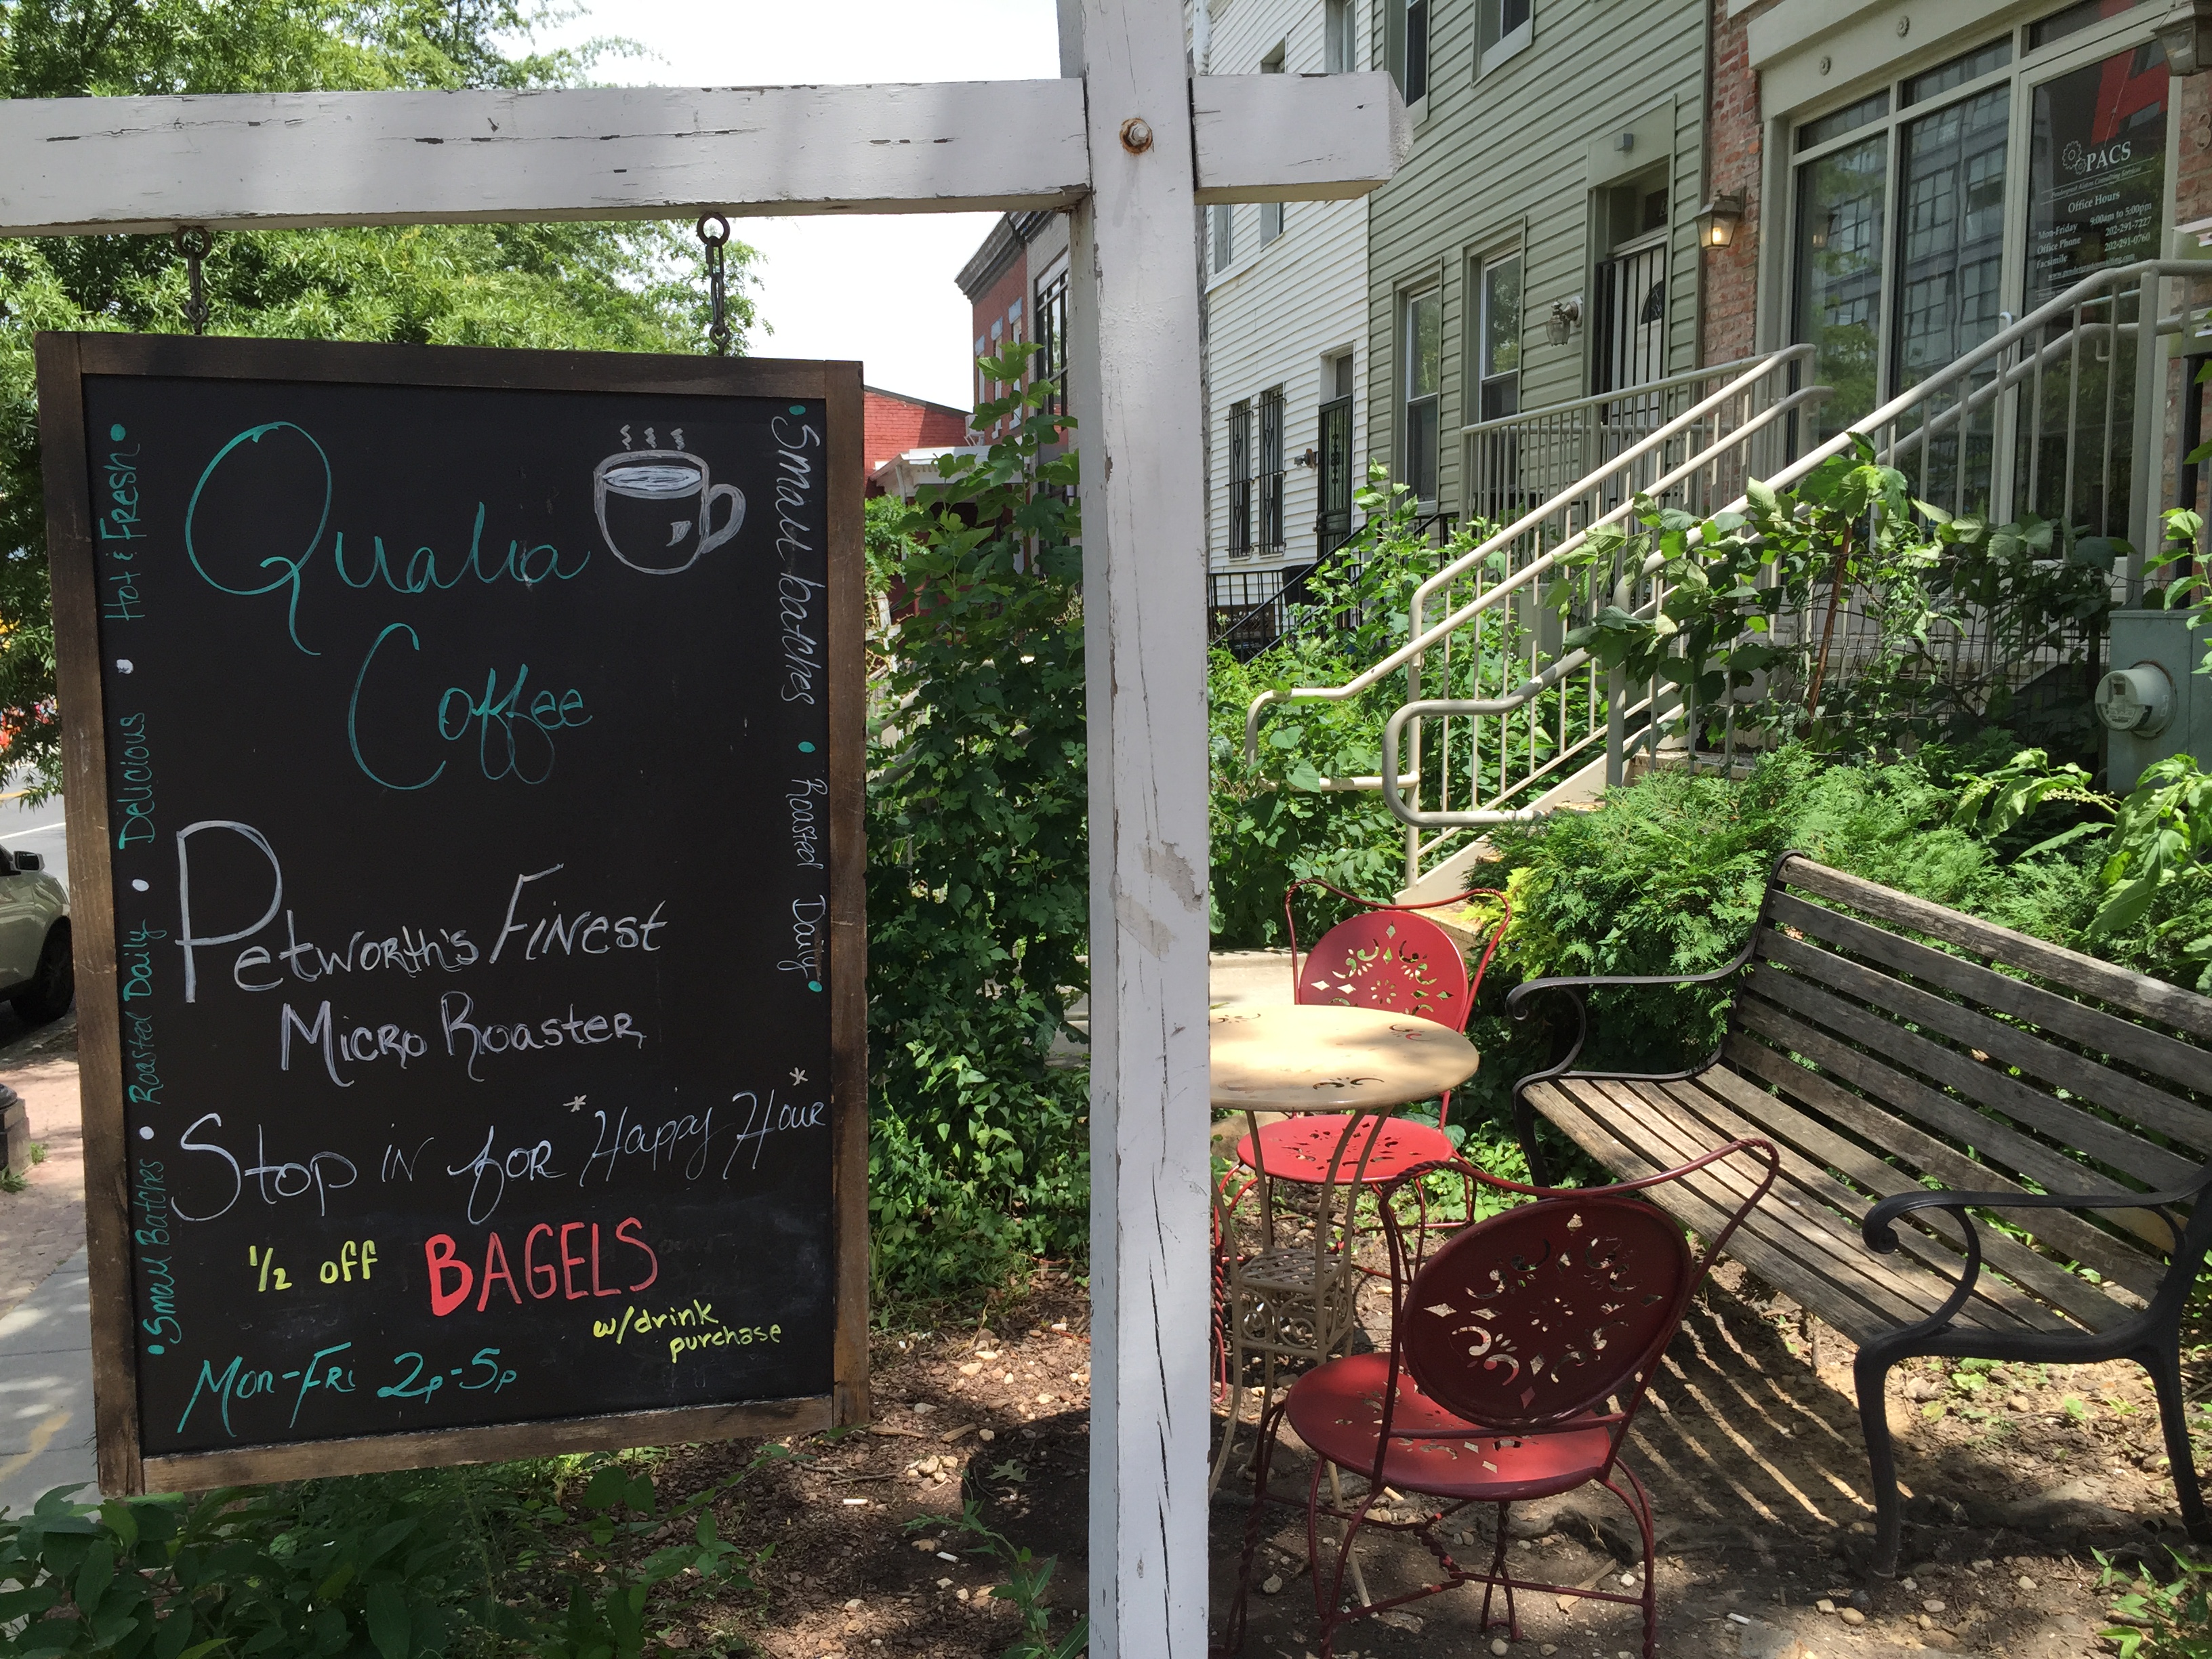 Qualia
Coffee
Petworth's Finest
Micro Roaster
Stop in for *Happy Hour*
1/2 off BAGELS
w/drink
purchase
Mon-Fri 2p-5p
• Small Batches • Roasted Daily • Delicious • Hot & Fresh •
• Small batches • Roasted Daily •
PACS
Office Hours
Mon-Friday 9:00am to 5:00pm
Office Phone 202-291-7227
Facsimile 202-291-0760